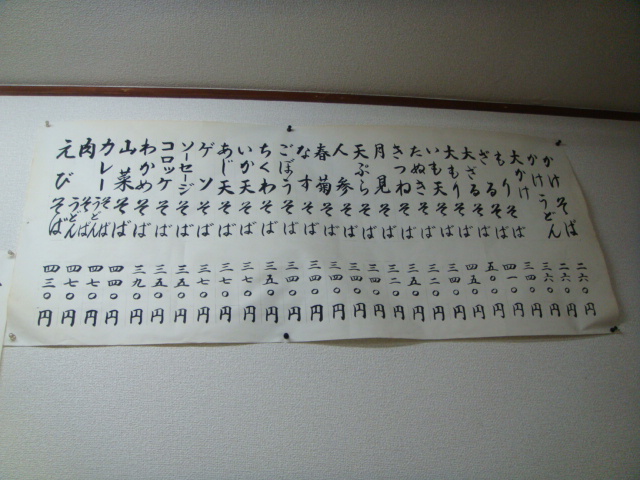 かけそば 二六〇円
かけうどん 二六〇円
大かけそば 三六〇円
もりそば 三四〇円
ざるそば 四一〇円
大ざるそば 五〇〇円
大もりそば 四五〇円
いも天そば 三五〇円
たぬきそば 三二〇円
きつねそば 三五〇円
月見そば 三二〇円
天ぷらそば 三四〇円
人参そば 三四〇円
春菊そば 三四〇円
なすそば 三四〇円
ごぼうそば 三四〇円
ちくわそば 三五〇円
いか天そば 円
あじ天そば 三七〇円
ゲソそば 三七〇円
ソーセージそば 三五〇円
コロッケそば 三五〇円
わかめそば 三九〇円
山菜そば 四四〇円
カレーそばうどん 四七〇円
肉そばうどん 四七〇円
えびそば 四三〇円